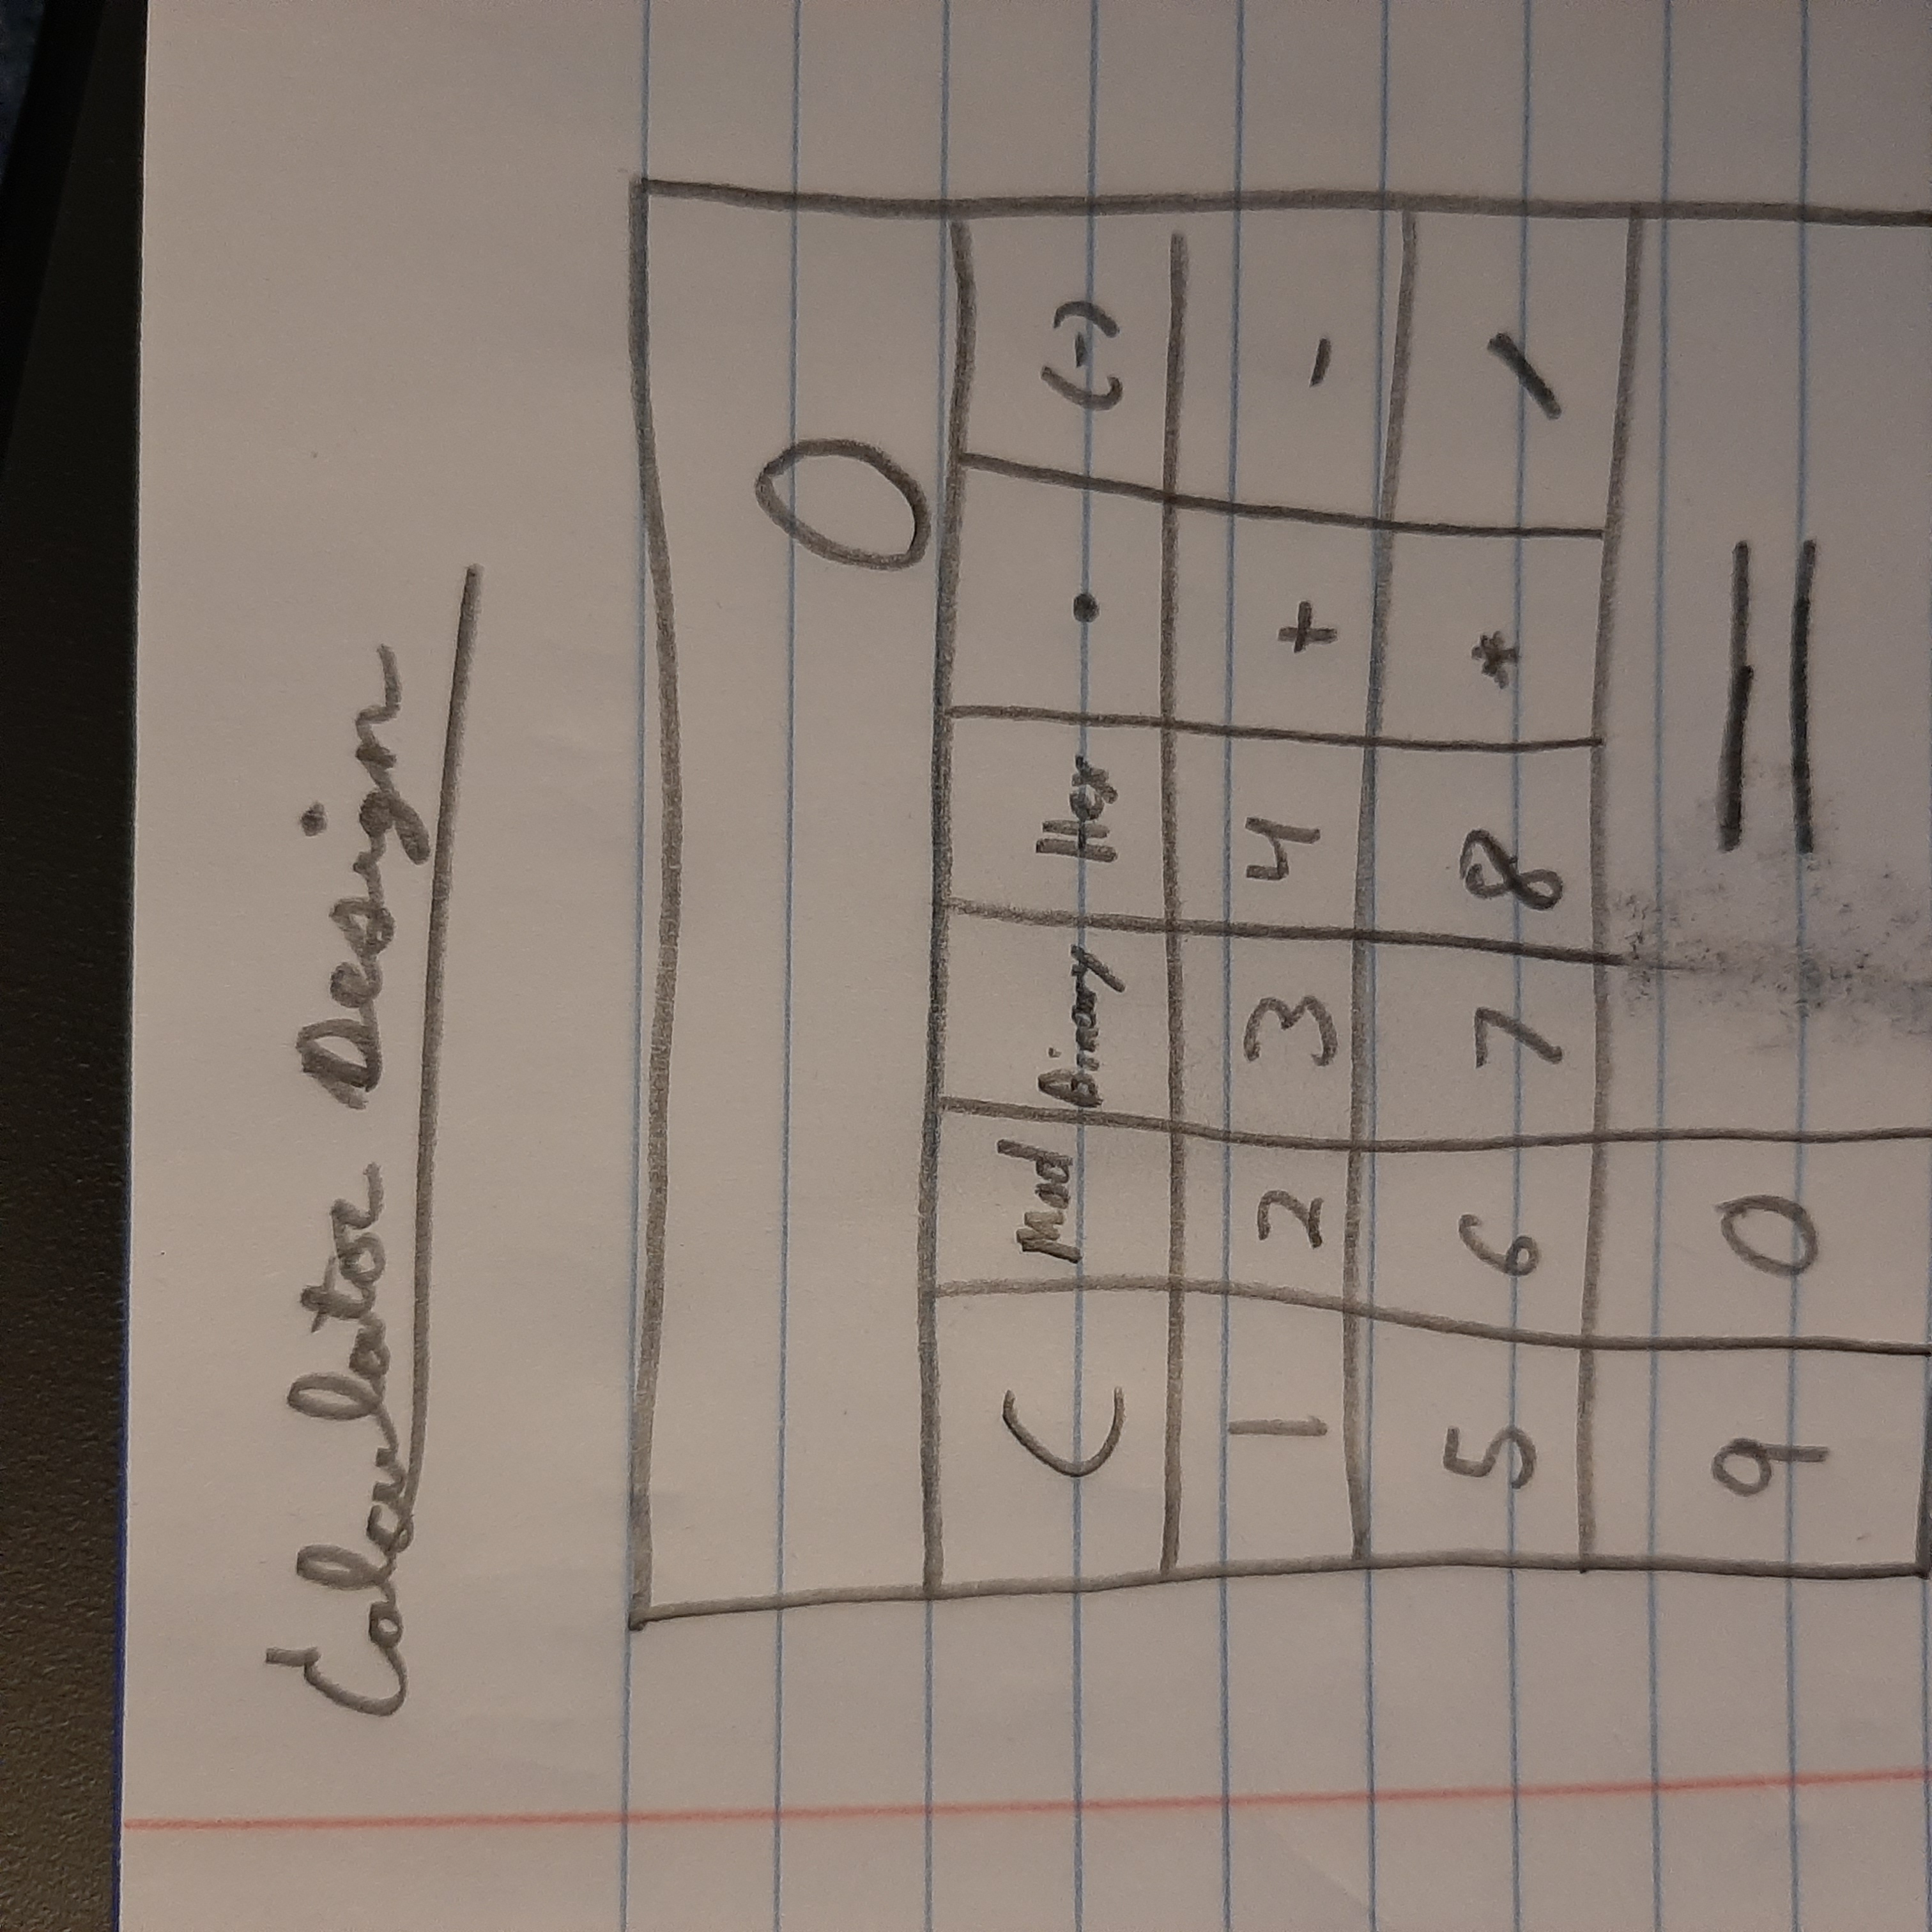 Calculator Design
0
C Mod Binary Hex . (-)
1 2 3 4 + -
5 6 7 8 * /
9 0 =